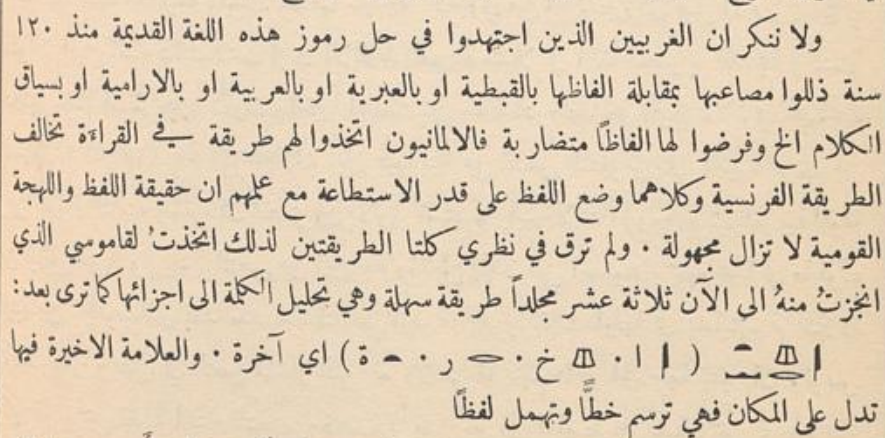 ولا ننكر ان الغربيين الذين اجتهدوا في حل رموز هذه اللغة القديمة منذ ١٢٠
سنة ذللوا مصاعبها بمقابلة الفاظها بالقبطية او بالعبرية او بالعربية او بالارامية او بسياق
الكلام الخ وفرضوا لها الفاظًا متضاربة فالالمانيون اتخذوا لهم طريقة في القراءة تخالف
الطريقة الفرنسية وكلاهما وضع اللفظ على قدر الاستطاعة مع علمهم ان حقيقة اللفظ واللهجة
القومية لا تزال مجهولة · ولم ترق في نظري كلتا الطريقتين لذلك اتخذتُ لقاموسي الذي
انجزتُ منهُ الى الآن ثلاثة عشر مجلداً طريقة سهلة وهي تحليل الكلمة الى اجزائها كما ترى بعد:
( ا · خ · ر · ة ) اي آخرة · والعلامة الاخيرة فيها
تدل على المكان فهي ترسم خطًّا وتهمل لفظًا